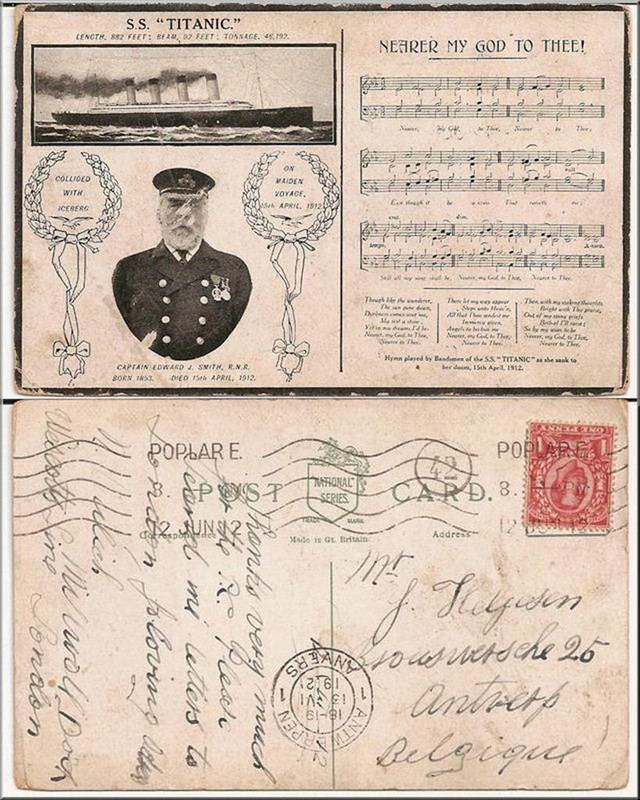 S.S. "TITANIC."
LENGTH, 882 FEET; BEAM, 92 FEET; TONNAGE, 46,192.
COLLIDED
WITH
ICEBERG
ON
MAIDEN
VOYAGE,
15th APRIL, 1912.
CAPTAIN EDWARD J. SMITH, R.N.R.
BORN 1853. DIED 15th APRIL, 1912.
NEARER MY GOD TO THEE!
Nearer, my God, to Thee, Nearer to Thee;
E'en though it be a cross That raiseth me;
cres. dim.
Still all my song shall be, Nearer, my God, to Thee, Nearer to Thee.
Though like the wanderer,
The sun gone down,
Darkness comes over me,
My rest a stone;
Yet in my dreams I'd be
Nearer, my God, to Thee,
Nearer to Thee.
There let my way appear
Steps unto Heav'n,
All that Thou sendest me
In mercy given,
Angels to beckon me
Nearer, my God, to Thee,
Nearer to Thee.
Then, with my waking thoughts
Bright with Thy praise,
Out of my stony griefs
Beth-el I'll raise;
So by my woes to be
Nearer, my God, to Thee,
Nearer to Thee.
Hymn played by Bandsmen of the S.S. "TITANIC" as she sank to
her doom, 15th April, 1912.
POPLAR E.
12 JUN 12
42
POPLAR E.
ONE PENNY
1 1
POST CARD.
NATIONAL
SERIES.
TRADE MARK
Correspondence
Made in Gt. Britain
Address
Thanks very much
for the
Please
send mi letters to
London
Millwall Dock
London
Mr
J.
25
Antverp
Belgique
ANTWERPEN
18-19
13 VI
1912
ANVERS